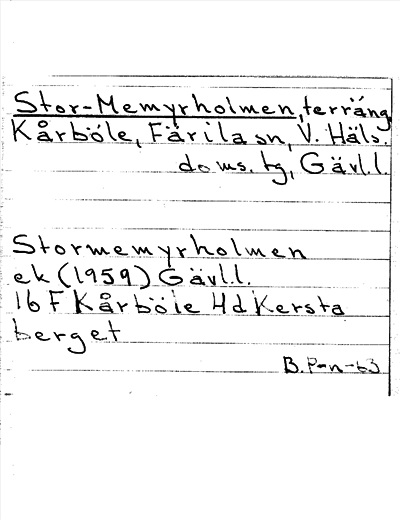 Stor-Memyrholmen, terräng
Kårböle, Färila sn, V. Häls.
doms. tg, Gävl.l.
Stormemyrholmen
ek (1959) Gävl.l.
16 F Kårböle 4d Kersta
berget
B. P-n-63